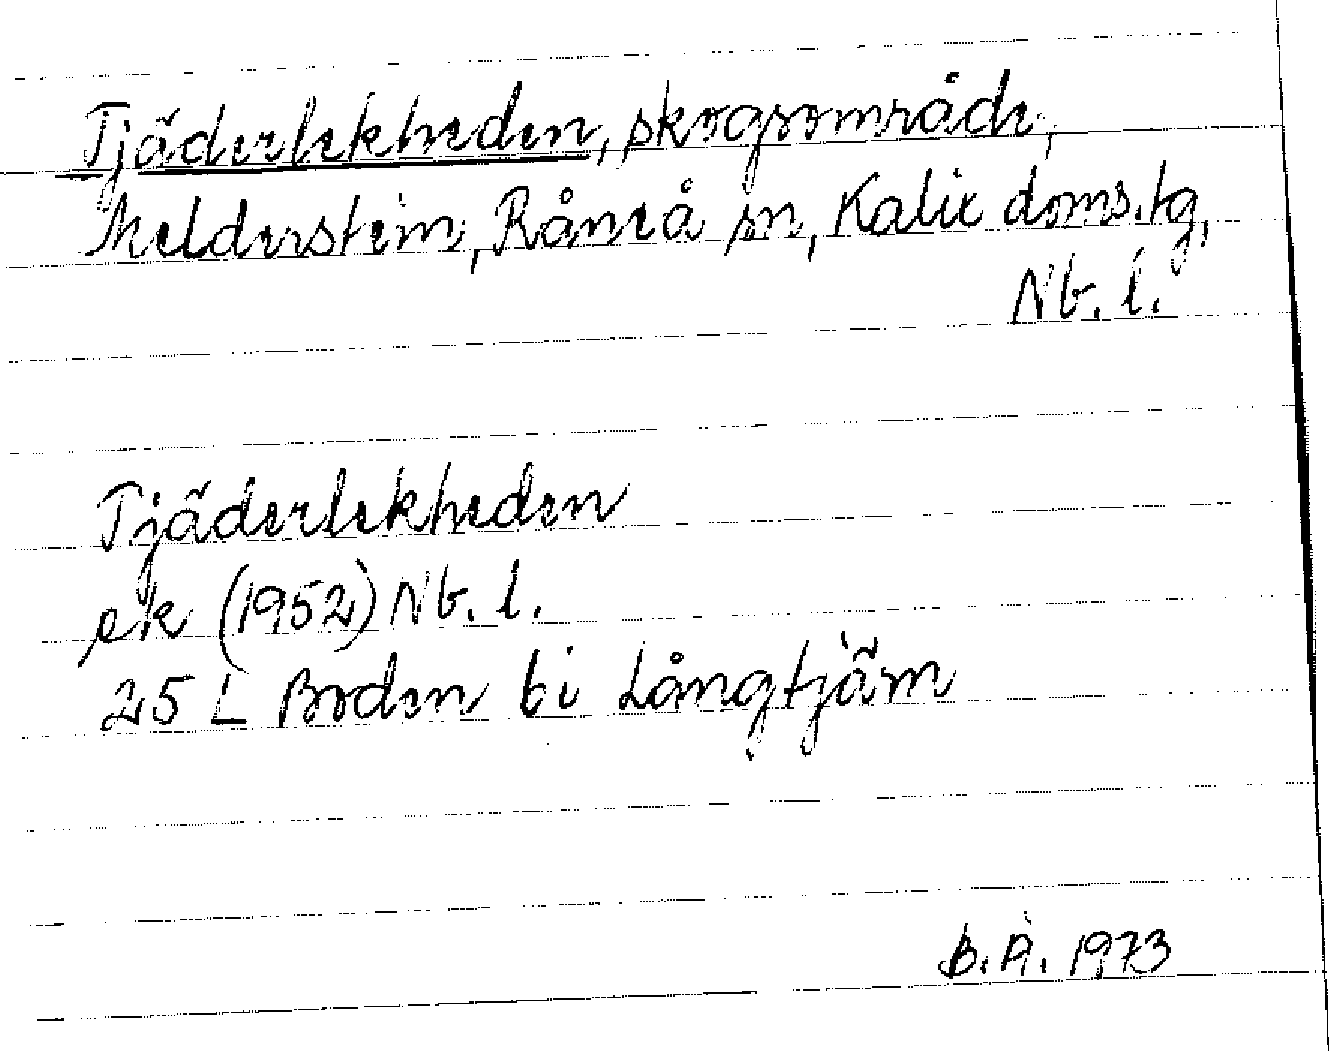 Tjäderlekheden, skogsområde,
Melderstein, Råneå sn, Kalix doms.tg,
Nb. l.
Tjäderlekheden
ek (1952) Nb. l.
25 L Boden bi Långtjärn
B.Å. 1973